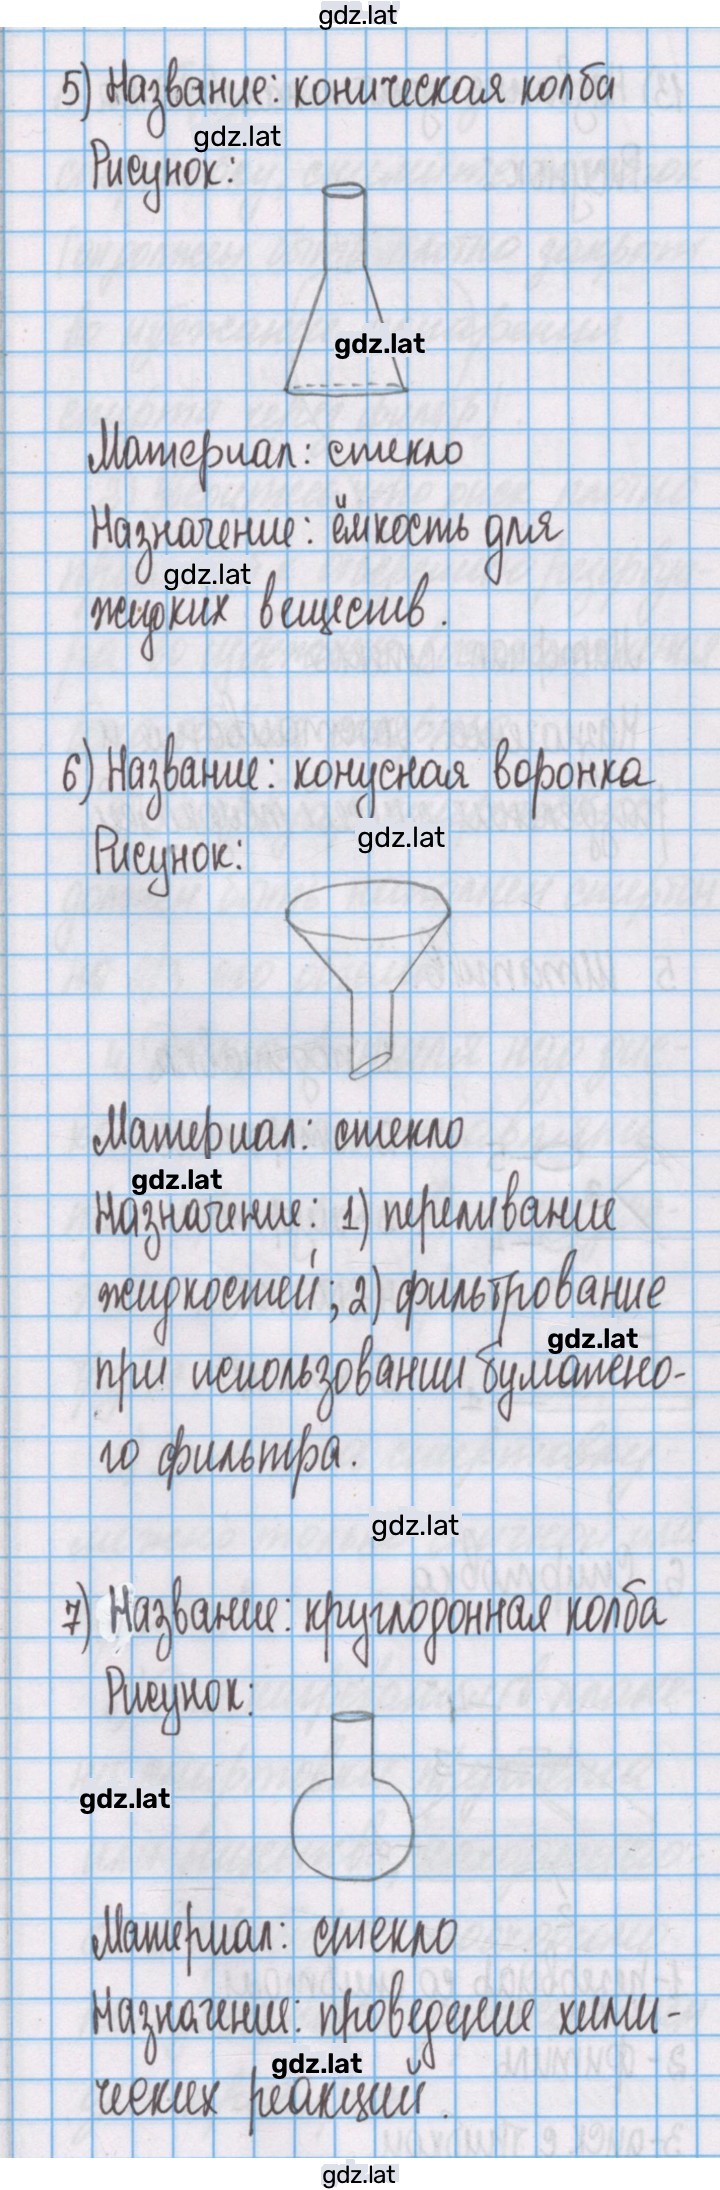 gdz.lat
5) Название: коническая колба
gdz.lat
Рисунок:
gdz.lat
Материал: стекло
Назначение: ёмкость для
gdz.lat
жидких веществ.
6) Название: конусная воронка
gdz.lat
Рисунок:
Материал: стекло
gdz.lat
Назначение: 1) переливание
жидкостей; 2) фильтрование
gdz.lat
при использовании бумажно-
го фильтра.
gdz.lat
7) Название: круглодонная колба
Рисунок:
gdz.lat
Материал: стекло
Назначение: проведение хими-
gdz.lat
ческих реакций.
gdz.lat